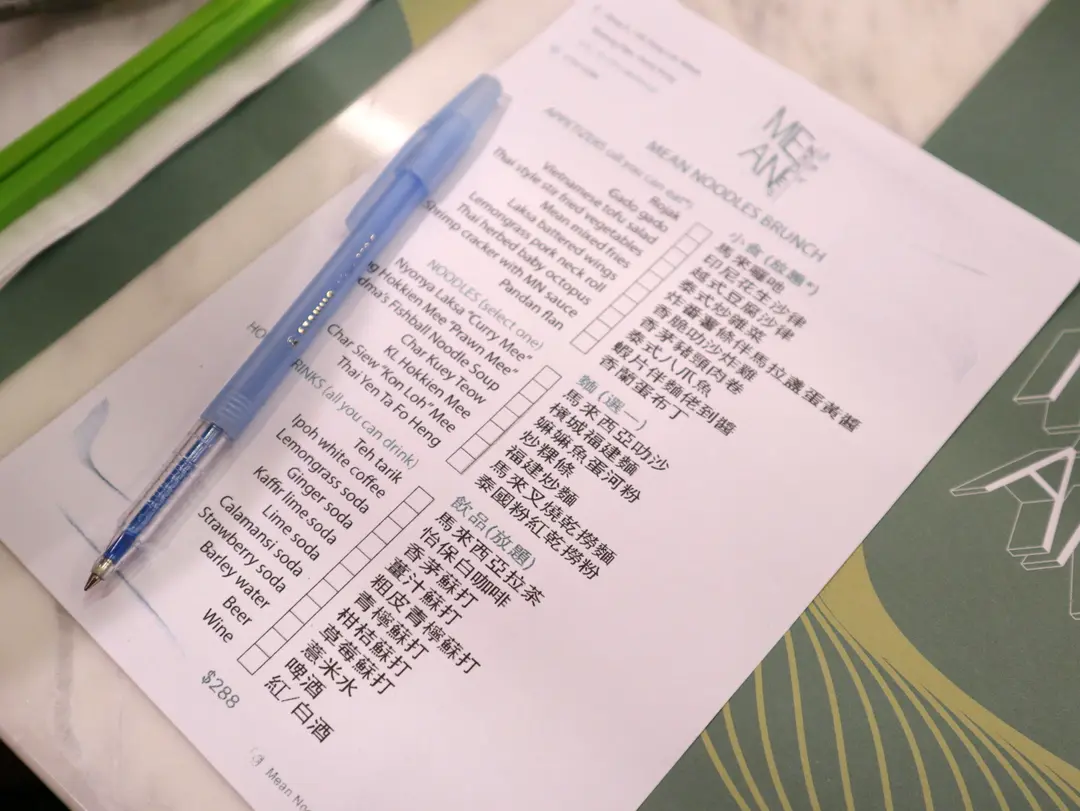 MEAN
MEAN NOODLES BRUNCH
APPETIZERS (all you can eat*) 小食 (放題*)
Rojak 馬來囉喏
Gado gado 印尼花生沙律
Vietnamese tofu salad 越式豆腐沙律
Thai style stir fried vegetables 泰式炒雜菜
Mean mixed fries 炸番薯條伴馬拉盞蛋黃醬
Laksa battered wings 香脆叻沙炸雞
Lemongrass pork neck roll 香茅豬頸肉卷
Thai herbed baby octopus 泰式八爪魚
Shrimp cracker with MN sauce 蝦片伴麵佬到醬
Pandan flan 香蘭蛋布丁
NOODLES (select one) 麵 (選一)
Nyonya Laksa "Curry Mee" 馬來西亞叻沙
Hokkien Mee "Prawn Mee" 檳城福建麵
Fishball Noodle Soup 嫲嫲魚蛋河粉
Char Kuey Teow 炒粿條
KL Hokkien Mee 福建炒麵
Char Siew "Kon Loh" Mee 馬來叉燒乾撈麵
Thai Yen Ta Fo Heng 泰國粉紅乾撈粉
RINKS (all you can drink) 飲品 (放題)
Teh tarik 馬來西亞拉茶
Ipoh white coffee 怡保白咖啡
Lemongrass soda 香茅蘇打
Ginger soda 薑汁蘇打
Kaffir lime soda 粗皮青檸蘇打
Lime soda 青檸蘇打
Calamansi soda 柑桔蘇打
Strawberry soda 草莓蘇打
Barley water 薏米水
Beer 啤酒
Wine 紅/白酒
$288
Mean Noo